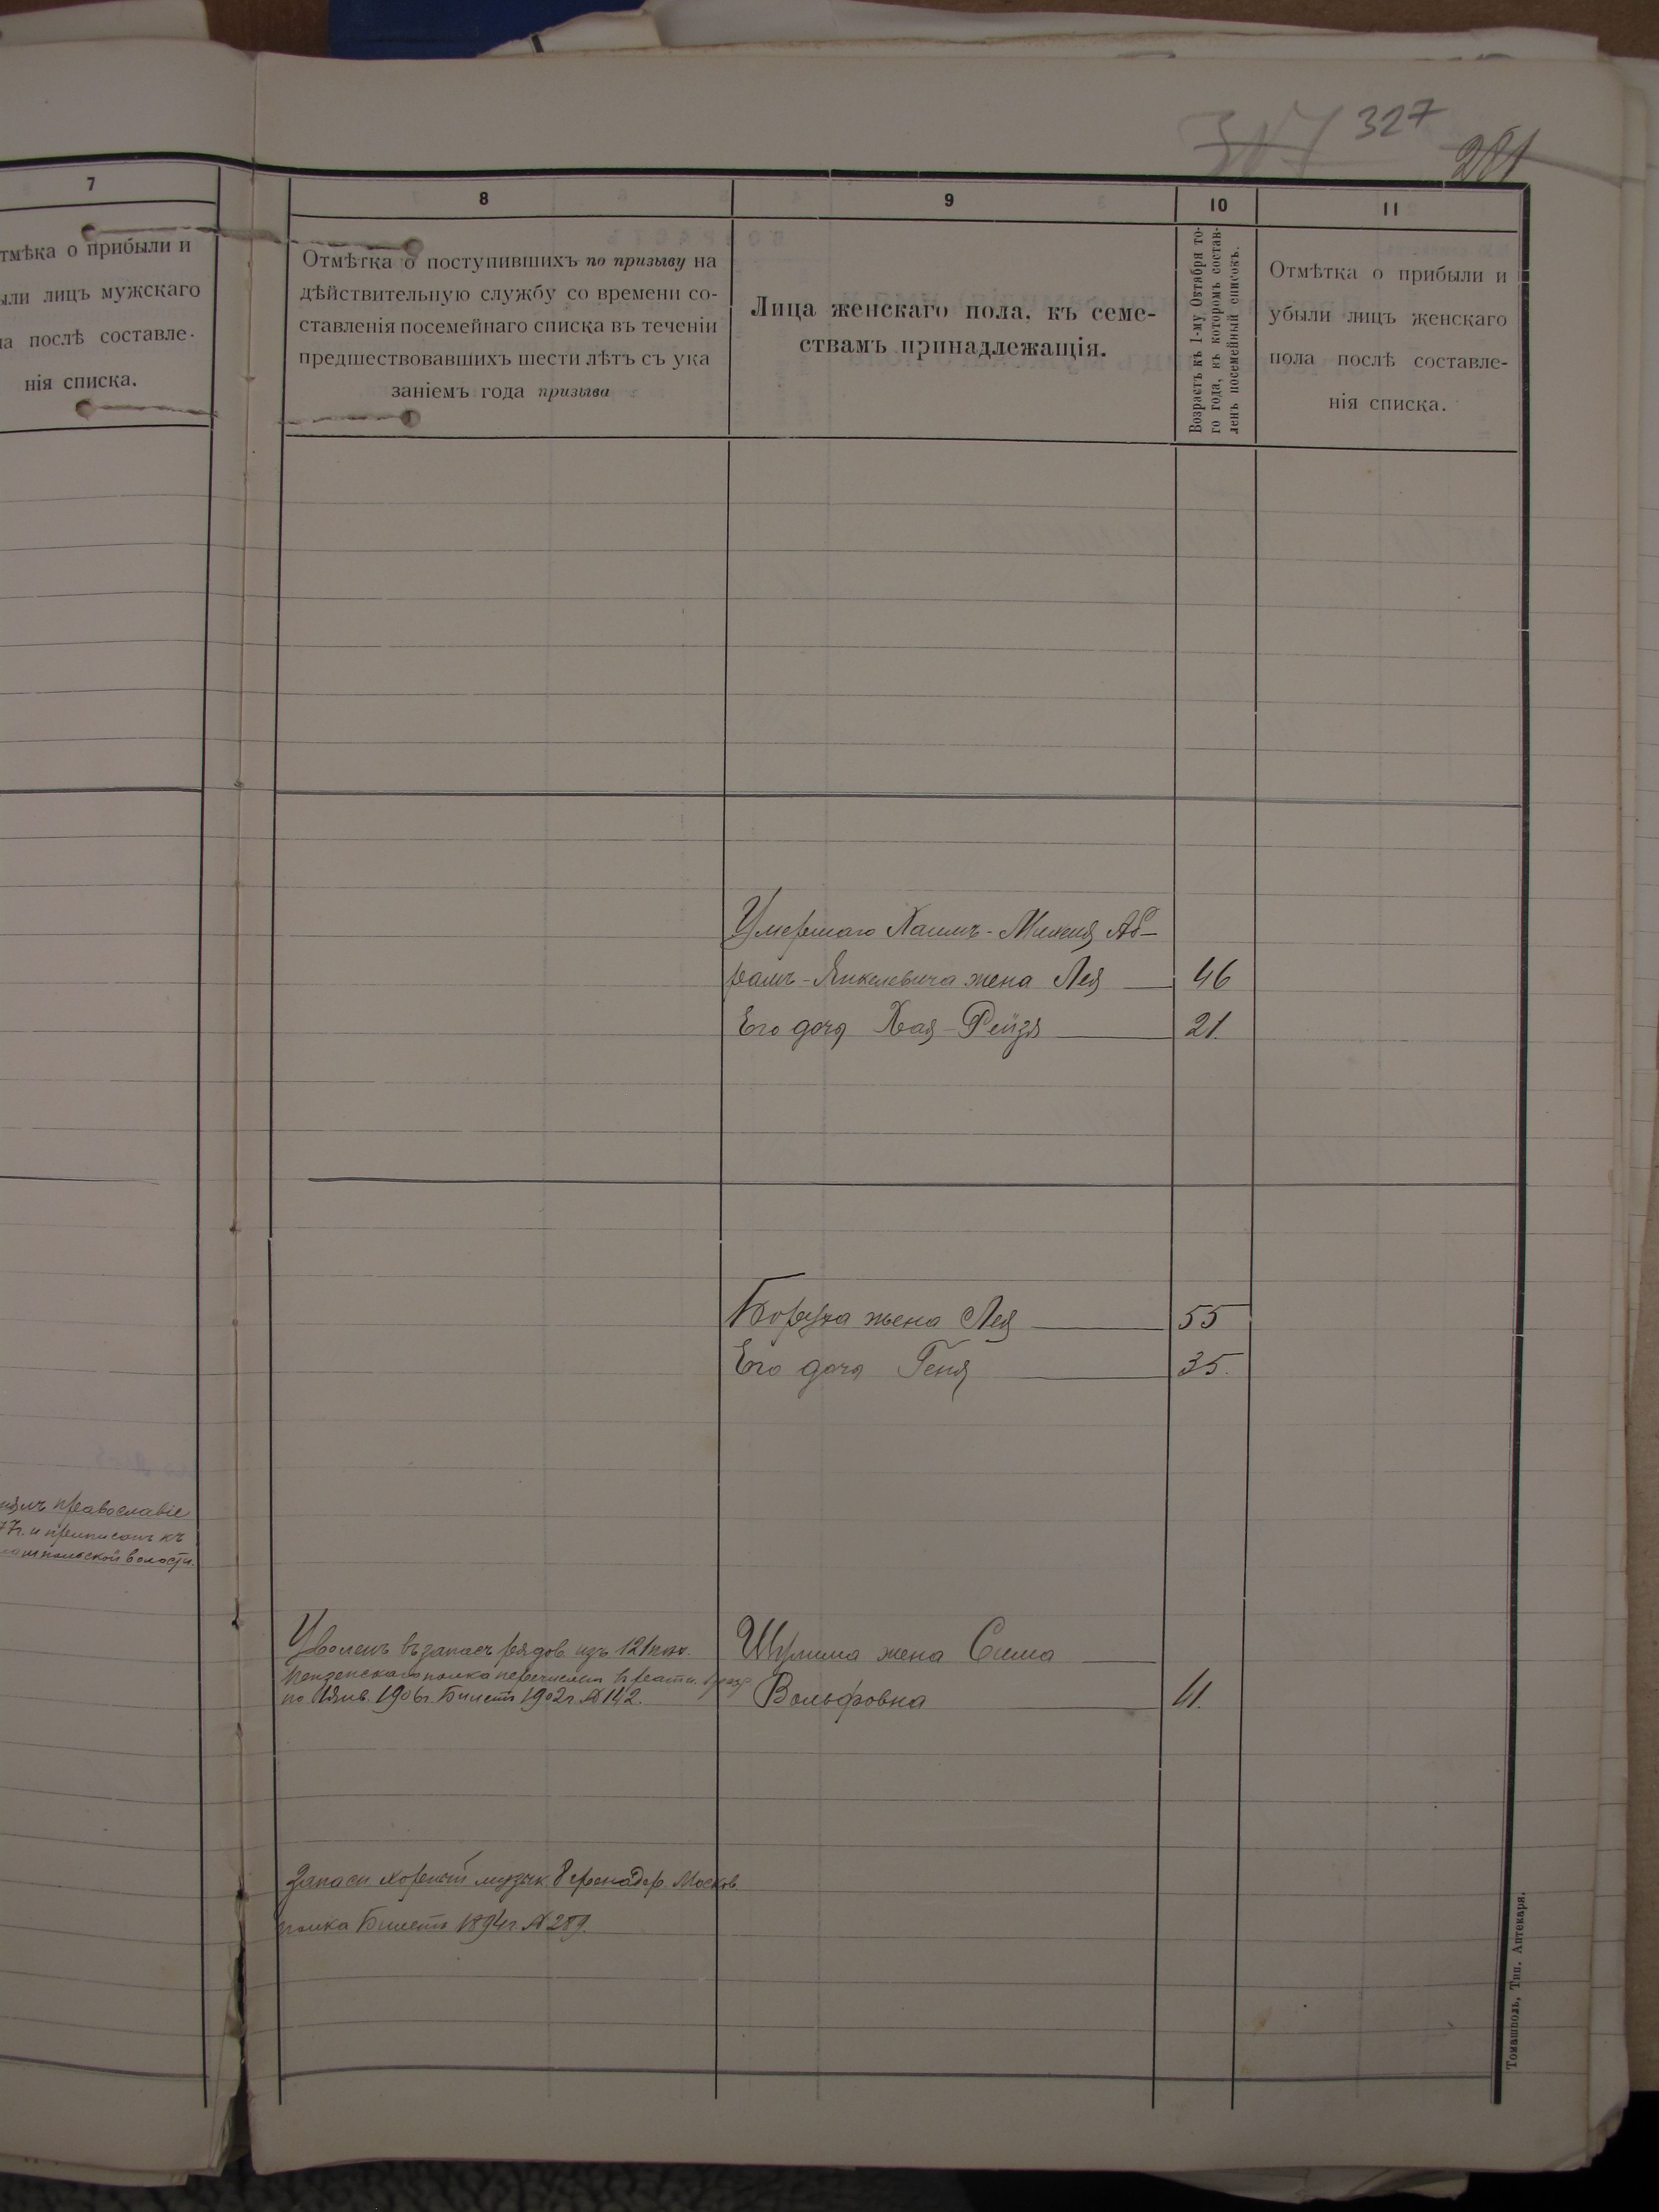 307 327
281
7
8
9
10
11
тмѣка о прибыли и
ыли лицъ мужскаго
ла послѣ составле-
нія списка.
Отмѣтка о поступившихъ по призыву на
дѣйствительную службу со времени со-
ставленія посемейнаго списка въ теченіи
предшествовавшихъ шести лѣтъ съ ука
заніемъ года призыва
Лица женскаго пола, къ семе-
ствамъ принадлежащія.
Возрастъ къ 1-му Октября то-
го года, въ которомъ состав-
ленъ посемейный списокъ.
Отмѣтка о прибыли и
убыли лицъ женскаго
пола послѣ составле-
нія списка.
Умершаго Хаимъ-Михеля Аб-
рамъ-Янкелевича жена Лея 46
Его дочь Хая-Рейзя 21.
Боруха жена Лея 55
Его дочь Геня 35.
православіе
77г. и приписанъ къ
волости.
Уволенъ въ запасъ рядов. изъ 121 пѣх.
Пензенскаго полка перечисленъ
по 1 Янв. 1906г. Билетъ 1902г. №142.
Шулима жена Сима
Вольфовна 41.
Запасн. хорист музык. 8 Гренадер. Москов.
полка Билетъ 1894г. №289.
Томашполь, Тип. Аптекаря.